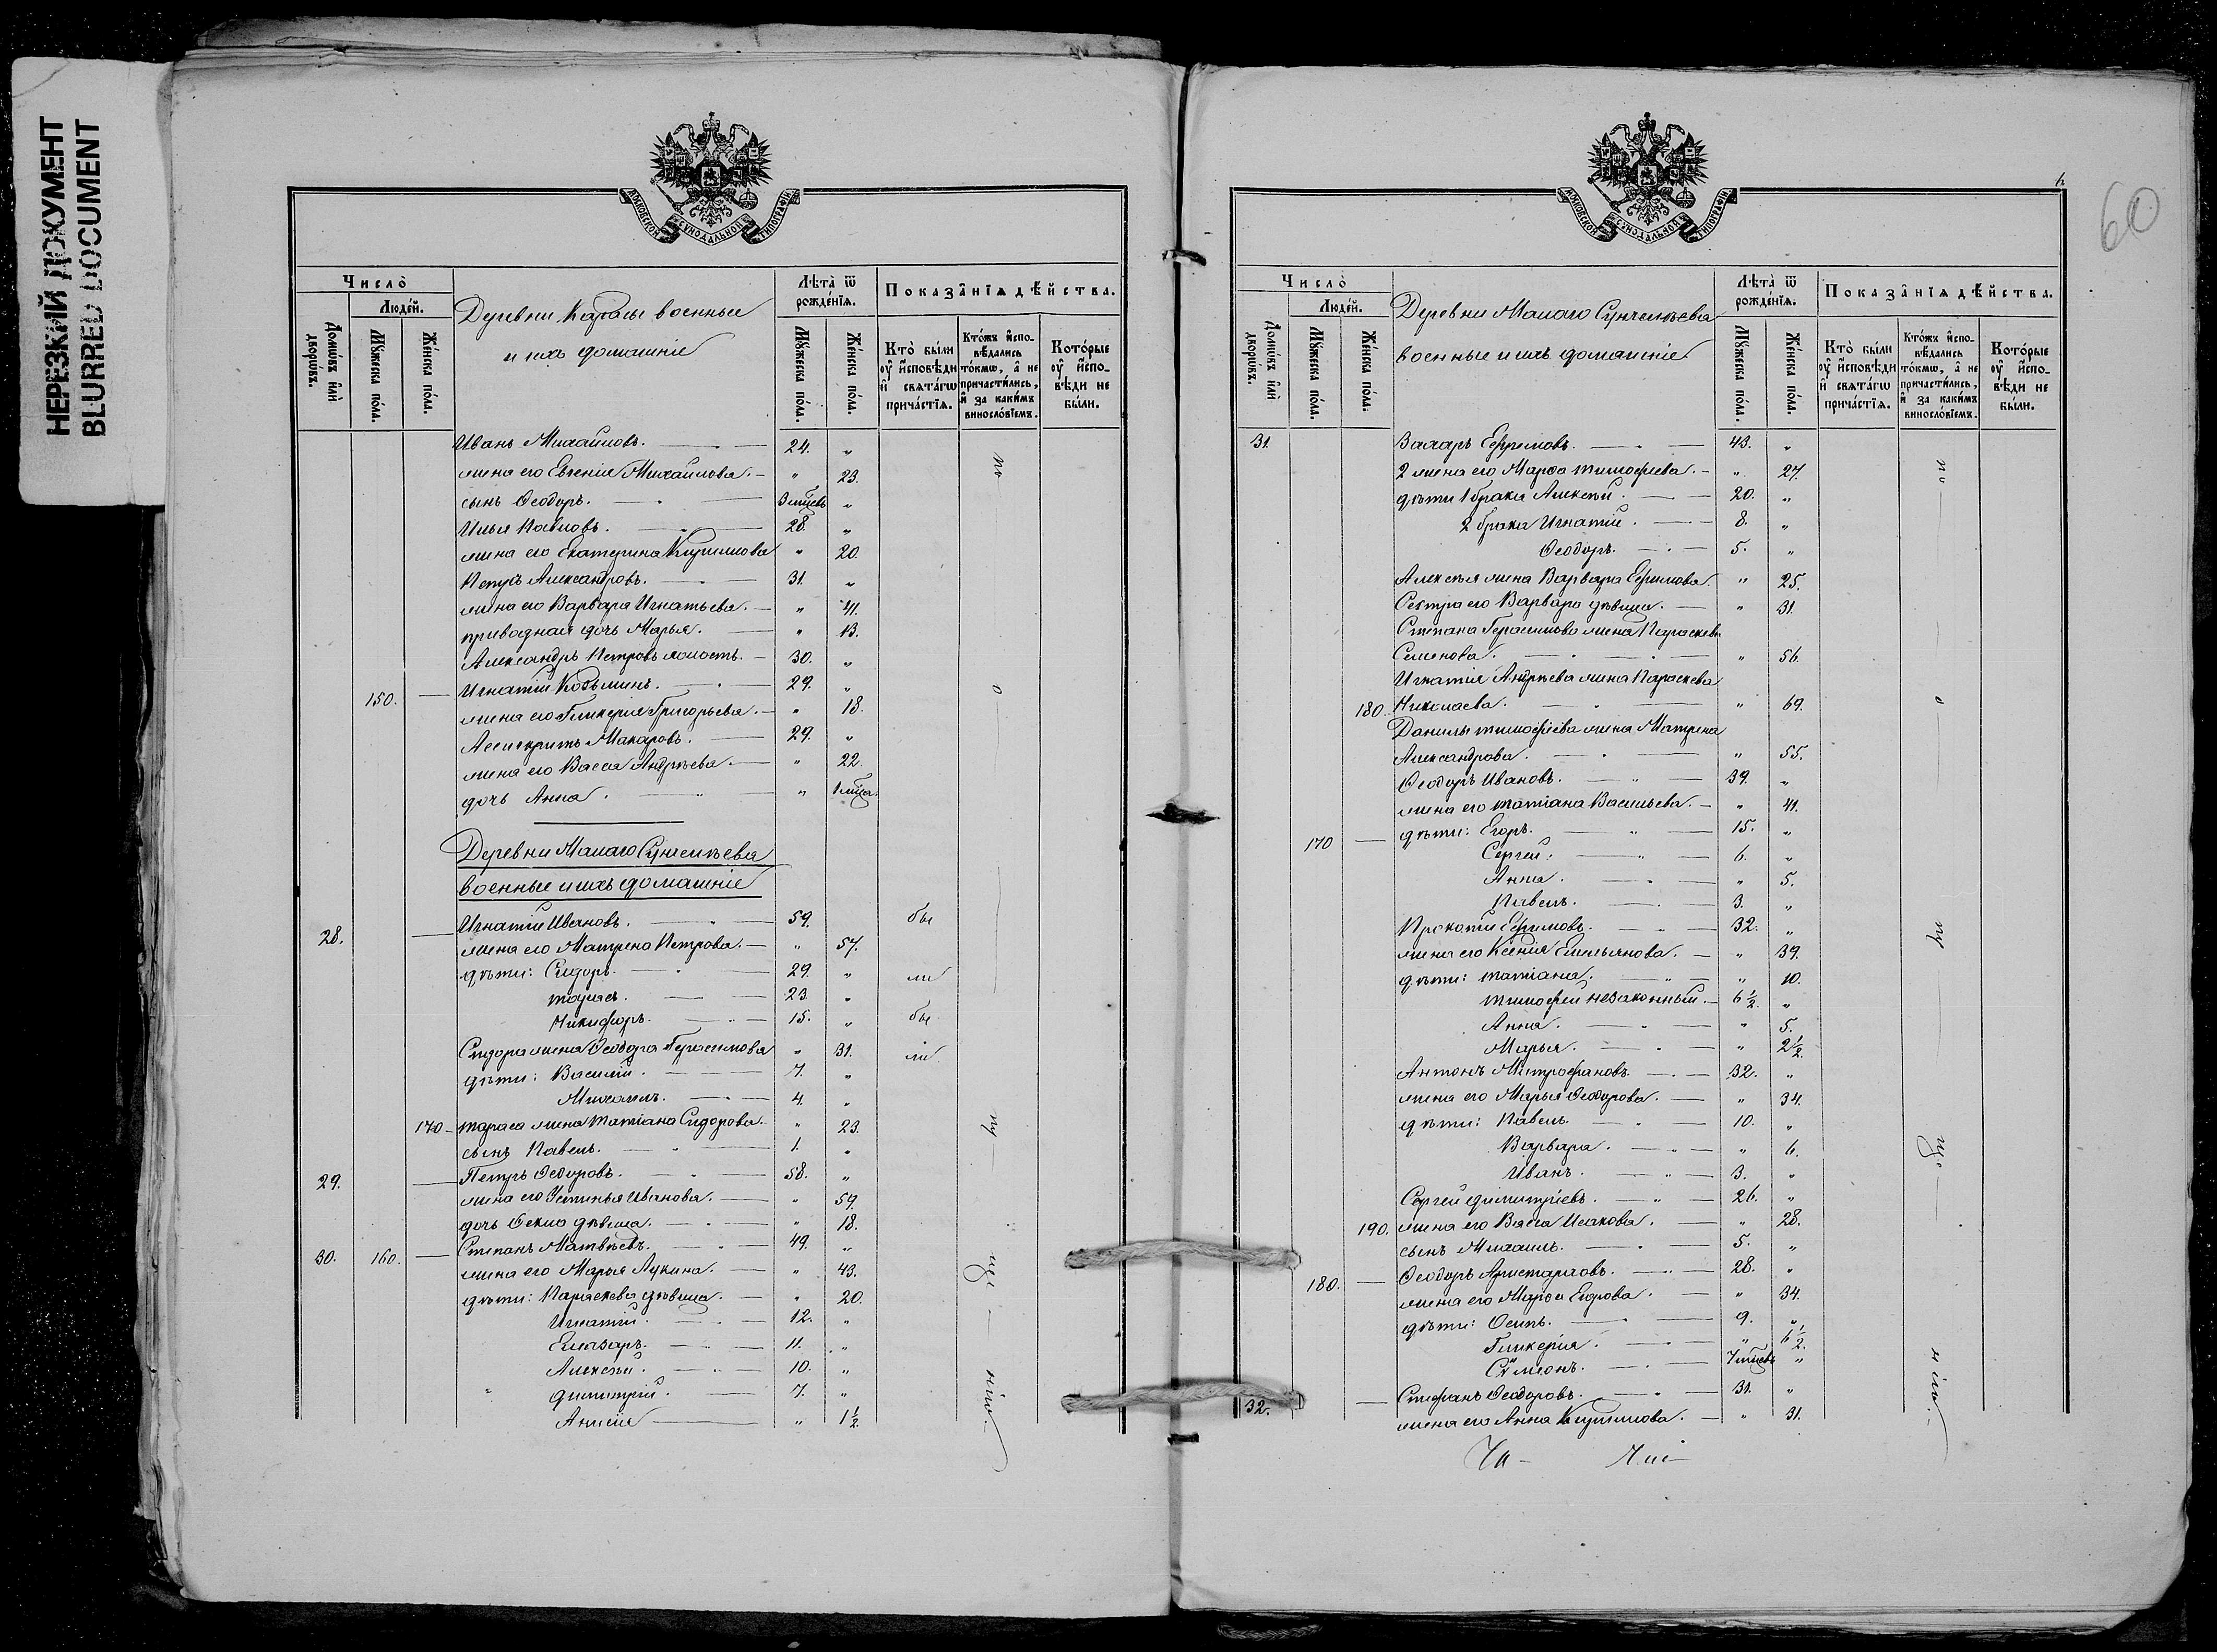 НЕРЕЗКИЙ ДОКУМЕНТ
BLURRED DOCUMENT
МОСКОВСКОЙ СѴНОДАЛЬНОЙ ТИПОГРАФІИ
Число̀
Люде́й.
Домѡ́въ и҆лѝ дворѡ́въ.
Мꙋ́жеска по́ла.
Же́нска по́ла.
Деревни Карасы военные
и ихъ домашніе
Лѣта̀ ѿ рожде́нїѧ.
Мꙋ́жеска по́ла.
Же́нска по́ла.
Показа̂нїѧ дѣ́йства.
Кто̀ бы́ли ᲂу҆ и҆сповѣ́ди и҆ свѧта́гѡ прича́стїѧ.
Кто́жъ и҆спо-вѣ́дались то́кмѡ, а҆ не причасти́лись, и҆ за каки́мъ винословїемъ.
Кото́рые ᲂу҆ и҆спо-вѣ́ди не бы́ли.
Иванъ Михайловъ. 24. „
жена его Евгенія Михайлова. „ 23.
сынъ Ѳеодоръ. 3 мѣсѧцъ „
Илья Павловъ. 28. „
жена его Екатерина Кириллова „ 20.
Петръ Александровъ. 31. „
жена его Варвара Игнатьева. „ 41.
приводная дочь Марья. „ 13.
Александръ Петровъ холостъ. 30. „
150. Игнатій Козьминъ. 29. „
жена его Гликерія Григорьева. „ 18.
Ассикритъ Макаровъ. 29. „
жена его Васса Андрѣева. „ 22.
дочь Анна. „ 1 мѣсѧцъ
Деревни Малаго Сунчелѣева
военные и ихъ домашніе
28. Игнатій Ивановъ. 59. „ бы
жена его Матрена Петрова. „ 57.
дѣти: Сидоръ. 29. „ ли
Тарасъ. 23. „
Никифоръ. 15. „ бы
Сидора жена Ѳеодора Герасимова „ 31. ли
дѣти: Василій. 7. „
Михаилъ. 4. „
170 Тараса жена Татіана Сидорова. „ 23.
сынъ Павелъ. 1. „
29. Петръ Ѳедоровъ. 58. „
жена его Устинья Иванова. „ 59.
дочь Ѳекла дѣвица. „ 18.
30. 160. Степанъ Матвѣевъ. 49. „
жена его Марья Лукина. „ 43.
дѣти: Параскева дѣвица. „ 20.
Игнатій. 12. „
Елеазаръ. 11. „
Алексѣй. 10. „
Димитрій. 7. „
Анисія „ 1½
60
Число̀
Люде́й.
Домѡ́въ и҆лѝ дворѡ́въ.
Мꙋ́жеска по́ла.
Же́нска по́ла.
Деревни Малаго Сунчелѣева
военные и ихъ домашніе
Лѣта̀ ѿ рожде́нїѧ.
Мꙋ́жеска по́ла.
Же́нска по́ла.
Показа̂нїѧ дѣ́йства.
Кто̀ бы́ли ᲂу҆ и҆сповѣ́ди и҆ свѧта́гѡ прича́стїѧ.
Кто́жъ и҆спо-вѣ́дались то́кмѡ, а҆ не причасти́лись, и҆ за каки́мъ винословїемъ.
Кото́рые ᲂу҆ и҆спо-вѣ́ди не бы́ли.
31. Захаръ Ефремовъ. 43. „
2 жена его Марѳа Тимофеева. „ 27.
дѣти 1 брака Алексѣй. 20. „
2 брака Игнатій. 8. „
Ѳеодоръ. 5. „
Алексѣя жена Варвара Ефимова. „ 25.
Сестра его Варвара дѣвица. „ 31.
Степана Герасимова жена Параскева
Семенова. „ 56.
Игнатія Андрѣева жена Параскева
180. Николаева. „ 69.
Данилы Тимофеева жена Матрена
Александрова. „ 55.
Ѳеодоръ Ивановъ. 39. „
жена его Татіана Васильева. „ 41.
170 дѣти: Егоръ. 15. „
Сергей. 6. „
Анна. „ 5.
Павелъ. 3. „
Прокопій Ефимовъ. 32. „
жена его Ксенія Емельянова. „ 39.
дѣти: Татіана. „ 10.
Тимофей незаконный. 6½. „
Анна. „ 5.
Марья. „ 2½.
Антонъ Митрофановъ. 32. „
жена его Марья Ѳеодорова. „ 34.
дѣти: Павелъ. 10. „
Варвара. „ 6.
Иванъ. 3. „
Сергей Димитріевъ. 26. „
190. жена его Васса Исакова. „ 28.
сынъ Михаилъ. 5. „
180. Ѳеодоръ Аристарховъ. 28. „
жена его Марѳа Егорова. „ 34.
дѣти: Осипъ. 9. „
Гликерія. „ 6½.
Симеонъ. 7 мѣсѧцъ „
32. Стефанъ Ѳеодоровъ. 31. „
жена его Анна Кириллова. „ 31.